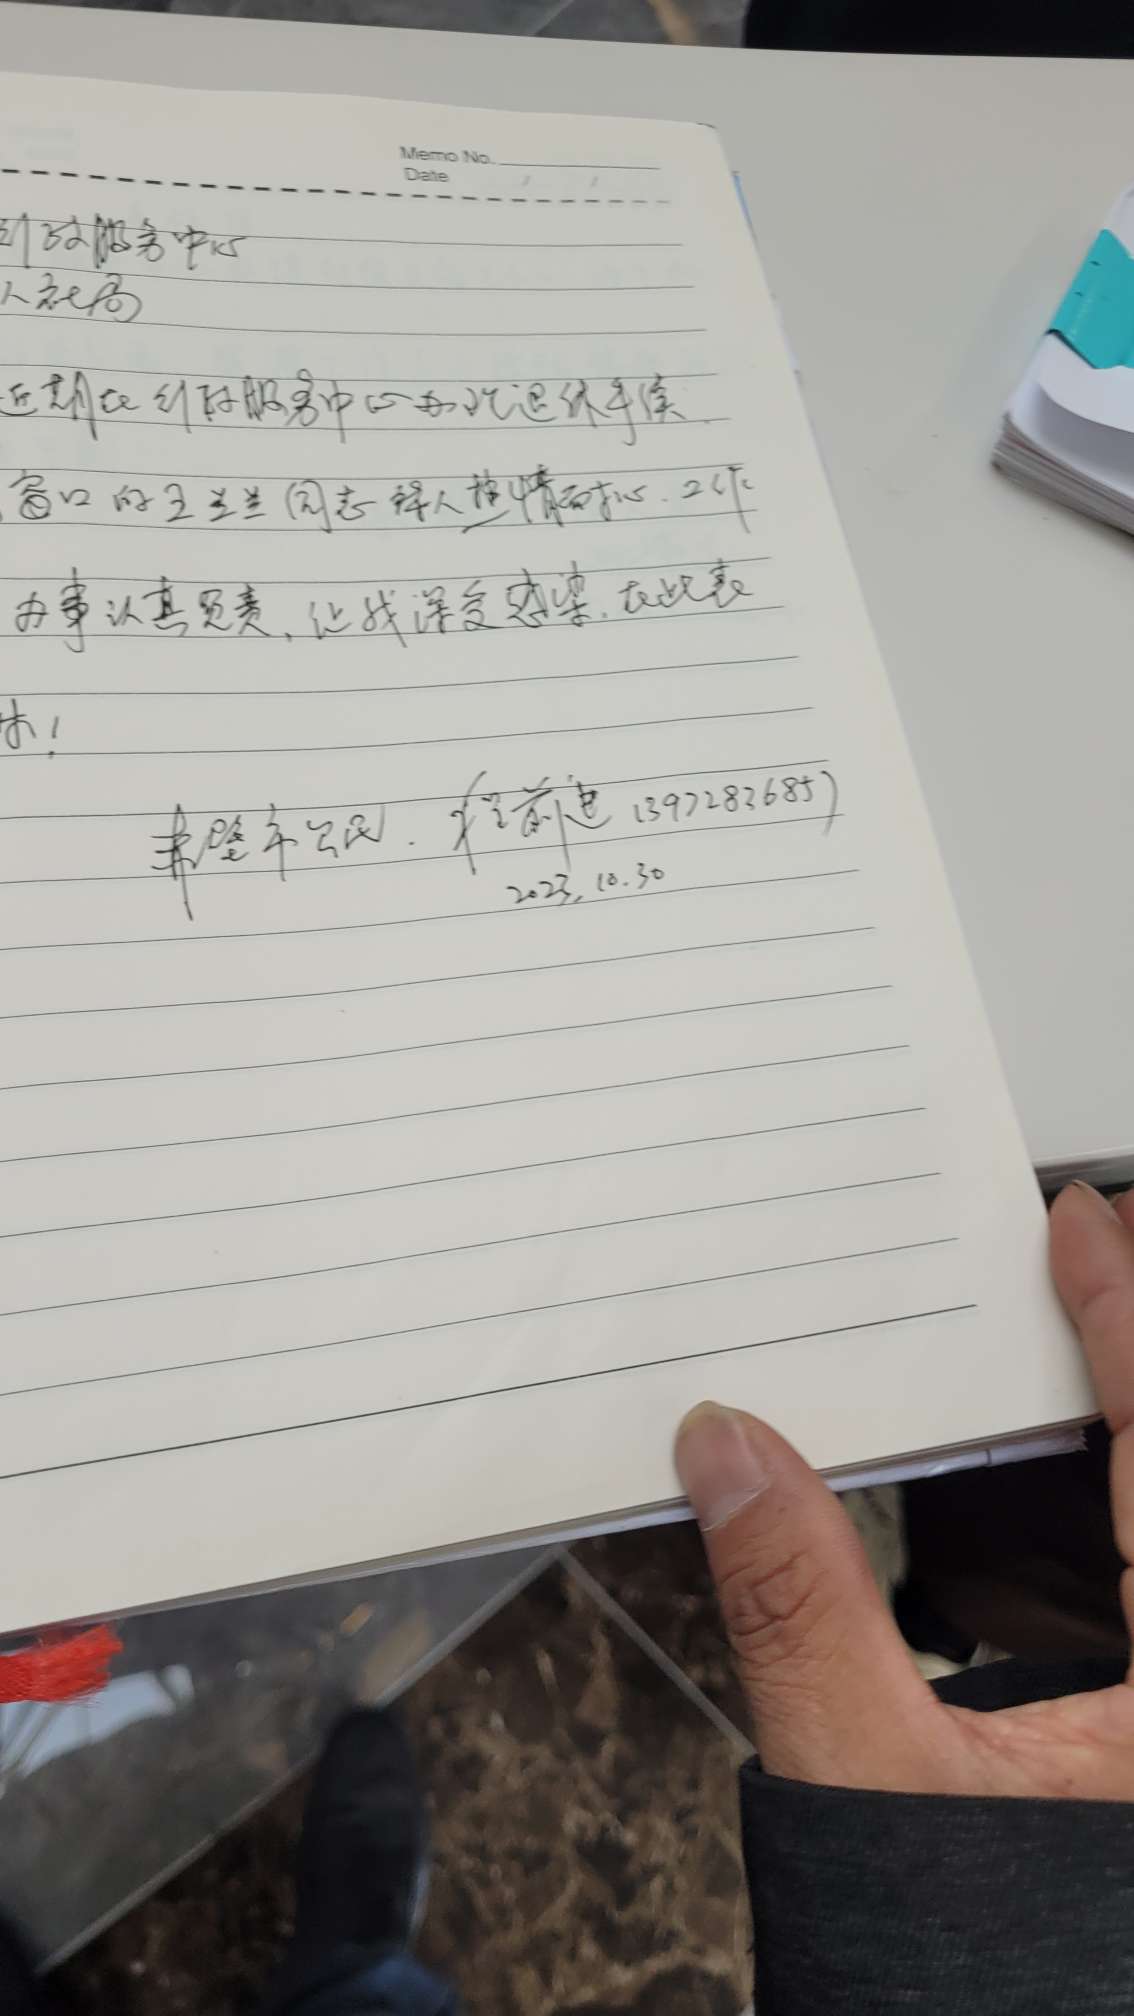 Memo No.
Date / /
行政服务中心
人社局
近期在行政服务中心办理退休手续
窗口的王兰兰同志待人热情耐心.工作
办事认真负责,让我深受感染.在此表
扬!
赤壁市公民.(程前进 1397283685)
2023.10.30